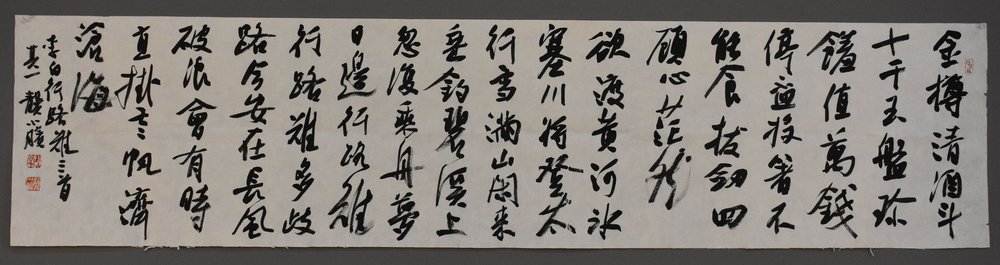 金樽清酒斗
十千玉盤珍
饈值萬錢
停盃投箸不
能食拔劍四
顧心茫然
欲渡黃河冰
塞川將登太
行雪滿山閑来
垂釣碧溪上
忽復乘舟夢
日邊行路難
行路難多歧
路今安在長風
破浪會有時
直掛雲帆濟
滄海
李白行路難三首
其一 龔